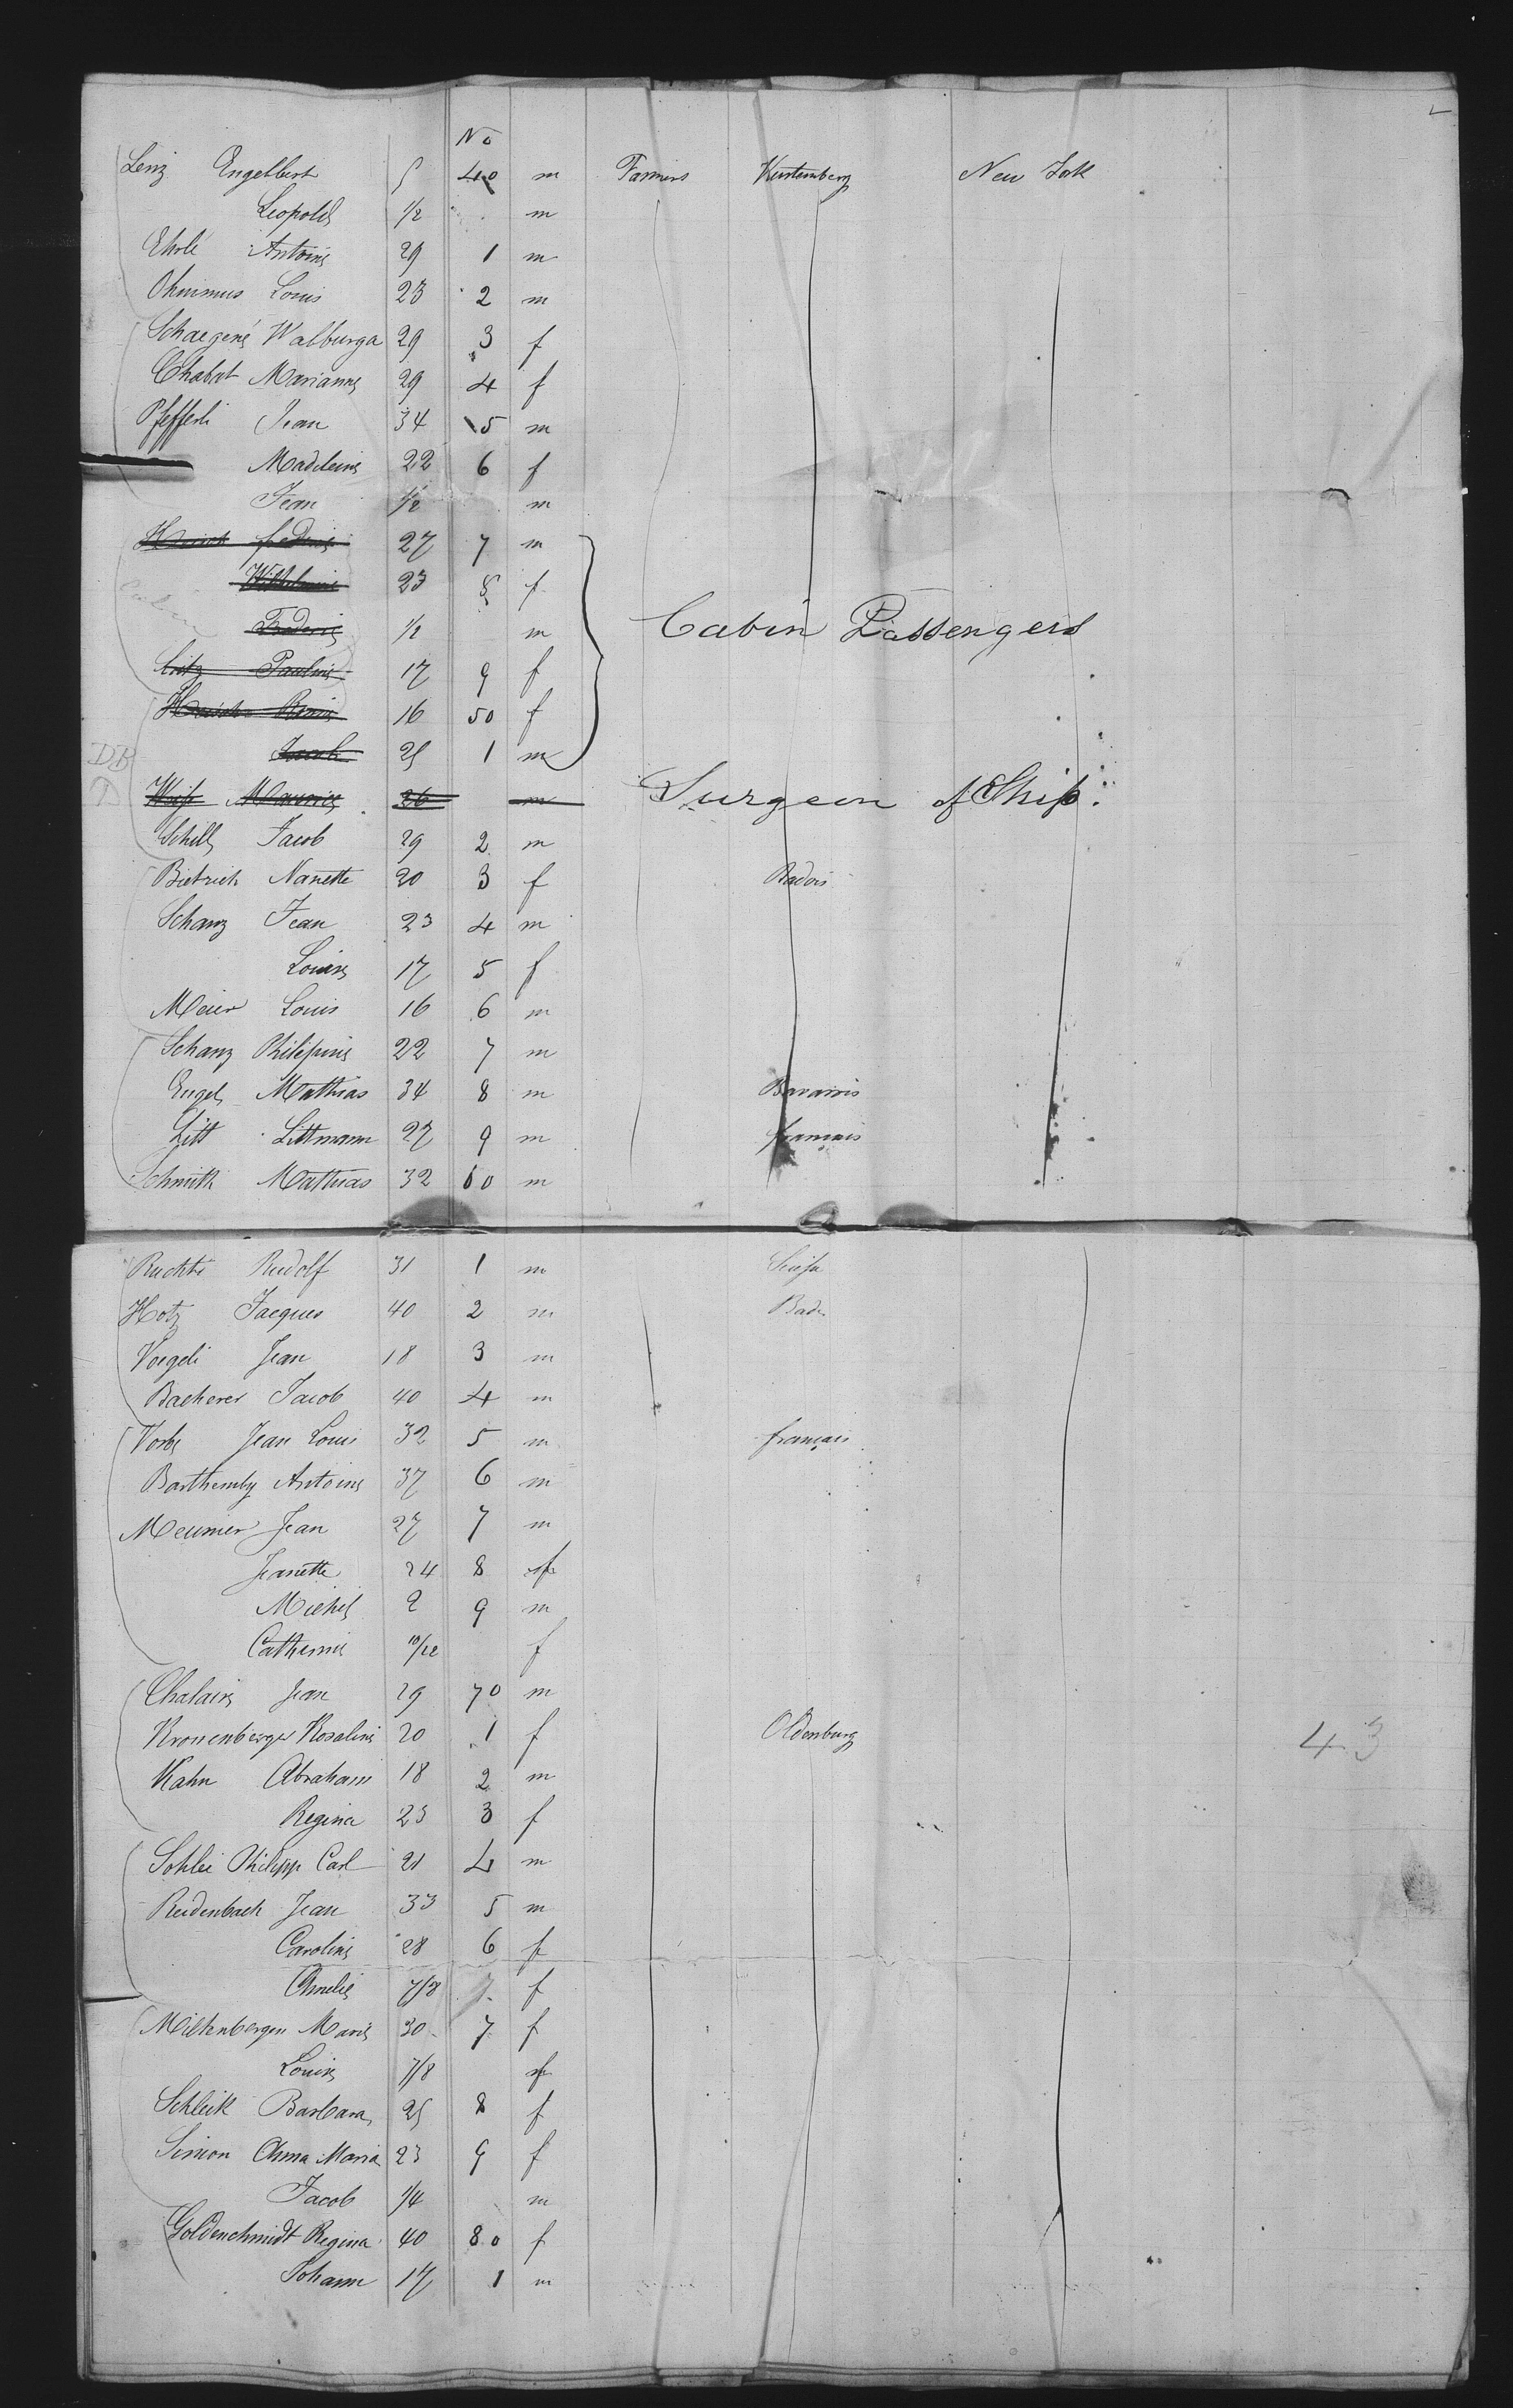 No
Lenz Engelbert 5 40 m Farmers Wurtemberg New Jork
Leopold 1/2 m
Ehrle Antoine 29 1 m
Ohnimus Louis 23 2 m
Schaegene Walburga 29 3 f
Chabat Marianne 29 4 f
Pfefferli Jean 34 5 m
Madeleine 22 6 f
Jean 1/2 m
27 7 m
Wilhelmine 23 8 f
Frederic 1/2 m Cabin Passengers
Pauline 17 9 f
16 50 f
Jacob 25 1 m
DB
Maurice 26 m Surgeon of Ship.
Schill Jacob 29 2 m
Bietrich Nanette 20 3 f Badois
Schanz Jean 23 4 m
Louise 17 5 f
Meier Louis 16 6 m
Schanz Philipine 22 7 m
Engel Mathias 34 8 m Bavarois
Litt Littmann 27 9 m français
Schmitt Mathias 32 60 m
Ruchti Rudolf 31 1 m
Hotz Jacques 40 2 m Bade
Voegeli Jean 18 3 m
Bacherer Jacob 40 4 m
Vorbe Jean Louis 32 5 m français
Barthemly Antoine 37 6 m
Meunier Jean 27 7 m
Jeanette 24 8 f
Michel 2 9 m
Catherine 10/12 f
Chalain Jean 29 70 m
Kronenberger Rosaline 20 1 f Oldenburg 43
Kahn Abraham 18 2 m
Regina 23 3 f
Sohlei Philipp Carl 21 4 m
Reidenbach Jean 33 5 m
Caroline 28 6 f
Amelie 7/8 7 f
Miltenbergen Marie 30 7 f
Louise 7/8 f
Schleik Barbara 25 8 f
Simon Anna Maria 23 9 f
Jacob 1/4 m
Goldenchmidt Regina 40 80 f
Johann 17 1 m